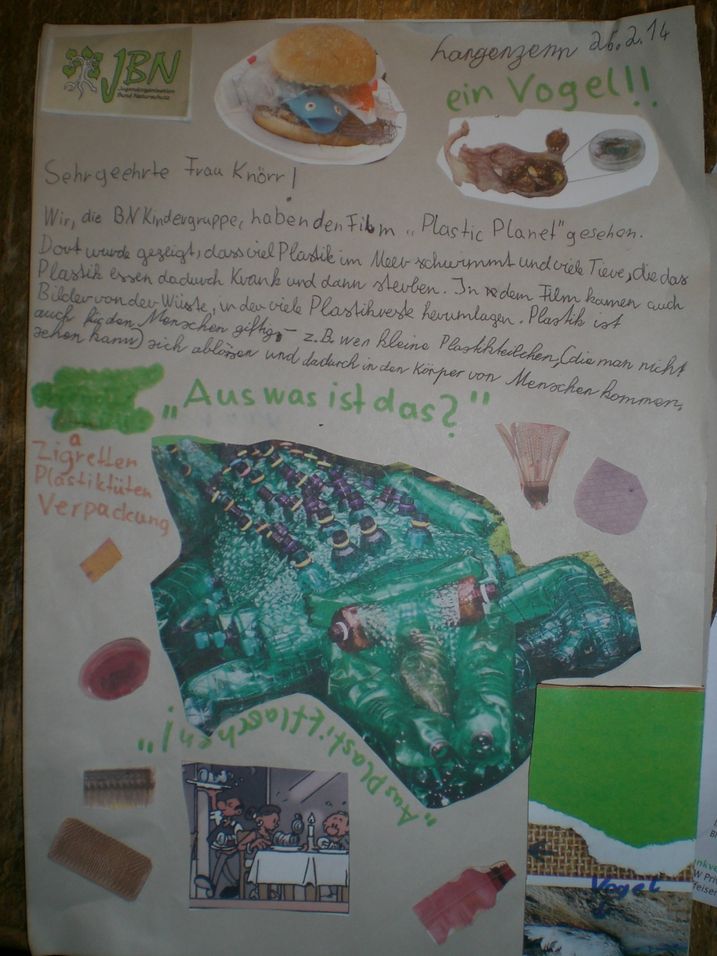 JBN
Jugendorganisation
Bund Naturschutz
Langenzenn 26.2.14
ein Vogel!!
Sehrgeehrte Frau Knörr!
Wir, die BN Kindergruppe, haben den Film „Plastic Planet" gesehen.
Dort wurde gezeigt, dass viel Plastik im Meer schwimmt und viele Tiere, die das
Plastik essen dadurch krank und dann sterben. In dem Film kamen auch
Bilder von der Wüste, in der viele Plastikreste herumlagen. Plastik ist
auch für den Menschen giftig, – z.B. wen kleine Plastikteilchen, (die man nicht
sehen kann) sich ablössen und dadurch in den Körper von Menschen kommen.
„Aus was ist das?"
Zigaretten
Plastiktüten
Verpackung
„Aus Plastikflaschen!"
Vogel